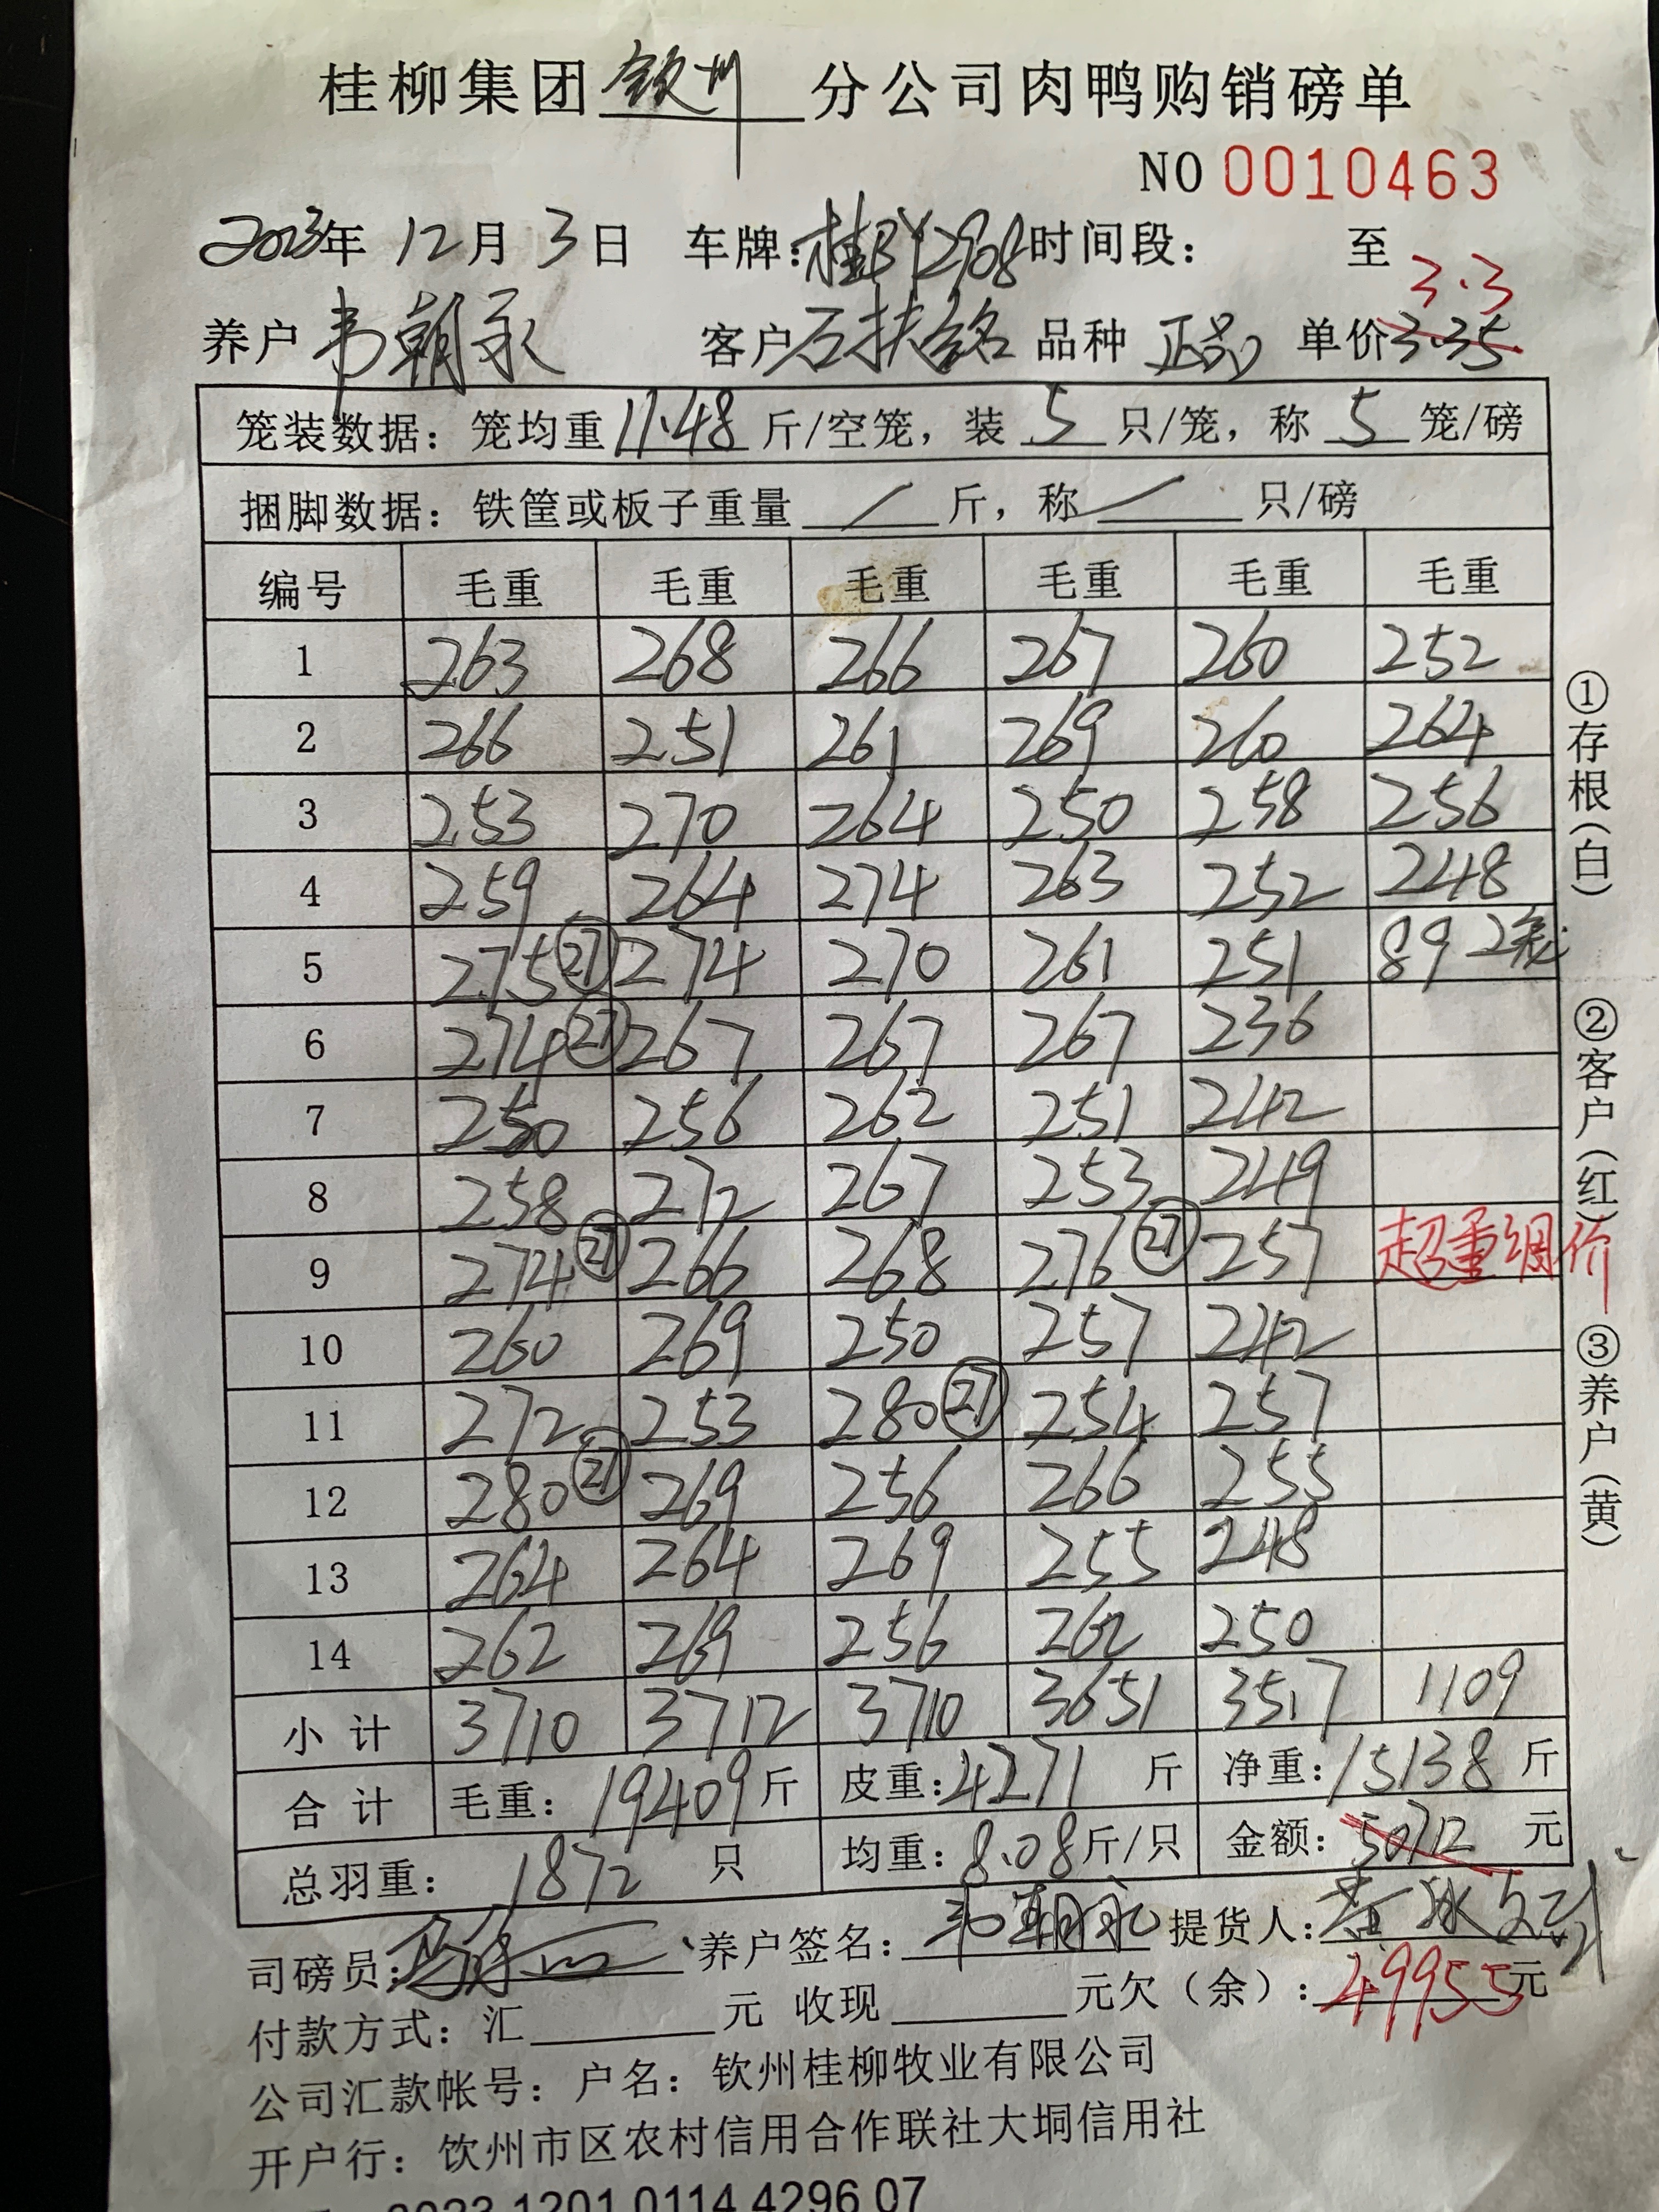 桂柳集团钦州分公司肉鸭购销磅单
NO 0010463
2023年 12月 3日 车牌:桂BY2908时间段: 至
3.3
养户 韦朝永 客户 石扶铭 品种 正品 单价3.35
笼装数据:笼均重11.48斤/空笼,装5只/笼,称5笼/磅
捆脚数据:铁筐或板子重量/斤,称/只/磅
编号 毛重 毛重 毛重 毛重 毛重 毛重
1 263 268 266 267 260 252
2 266 251 261 269 260 264
3 253 270 264 250 258 256
4 259 264 274 263 252 248
5 275 27 274 270 261 251 89 2笼
6 274 27 267 267 267 236
7 250 256 262 251 242
8 258 272 267 253 249
9 274 27 266 268 276 27 257 超重调价
10 260 269 250 257 242
11 272 253 280 27 254 257
12 280 27 269 256 266 255
13 264 264 269 255 248
14 262 269 256 262 250
小计 3710 3712 3710 3651 3517 1109
合计 毛重:19409斤 皮重:4271斤 净重:15138斤
总羽重:1872只 均重:8.08斤/只 金额:50712元
司磅员: 养户签名:韦朝永 提货人:
付款方式:汇 元 收现 元欠(余):49955元
公司汇款帐号:户名:钦州桂柳牧业有限公司
开户行:钦州市区农村信用合作联社大垌信用社
2023 1201 0114 4296 07
①存根(白) ②客户(红) ③养户(黄)